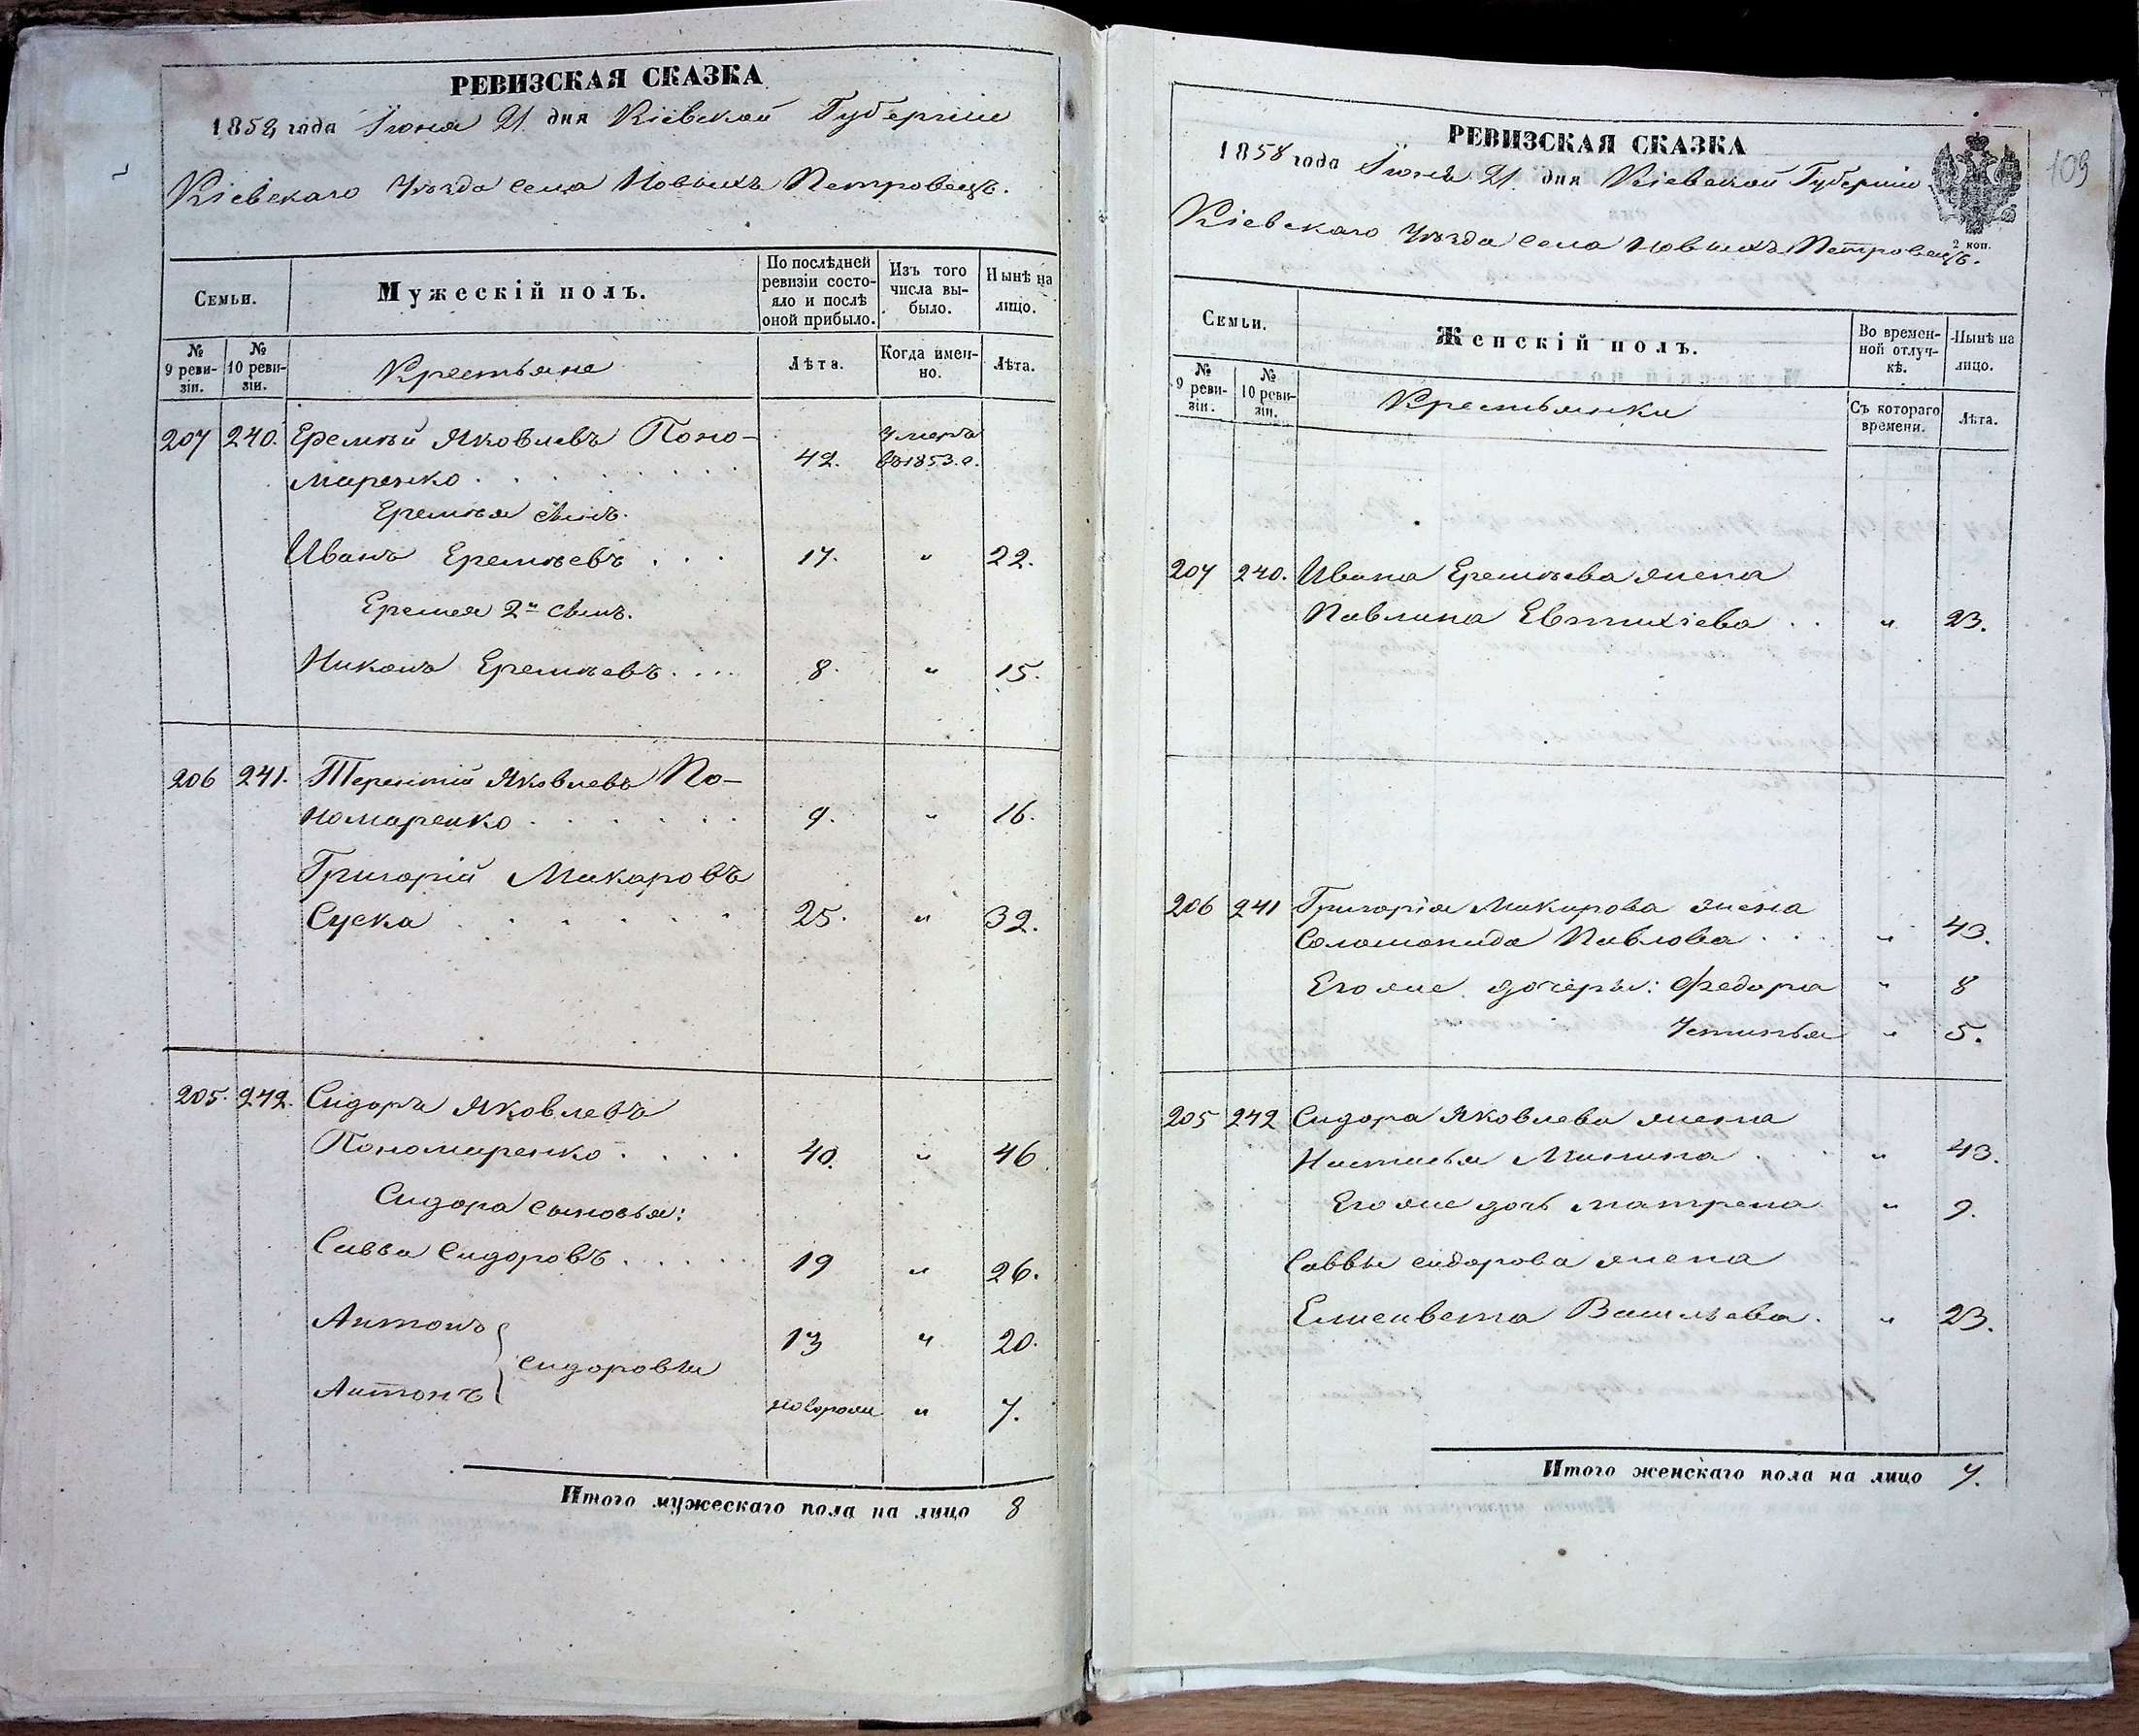 РЕВИЗСКАЯ СКАЗКА
1858 года Іюня 21 дня Кіевской Губерніи
Кіевскаго Уѣзда села Новыхъ Петровецъ.
Семьи.
Мужескій полъ.
По послѣдней ревизіи состояло и послѣ оной прибыло.
Изъ того числа выбыло.
Нынѣ на лицо.
№ 9 ревизіи.
№ 10 ревизіи.
Крестьяне
Лѣта.
Когда именно.
Лѣта.
207 240. Еремѣй Яковлевъ Поно-
маренко 42. умеръ въ 1853. г.
Еремѣя сынъ.
Иванъ Еремѣевъ 17. " 22.
Еремея 2й сынъ.
Никонъ Еремѣевъ 8. " 15.
206 241. Терентій Яковлевъ По-
номаренко 9. " 16.
Григорій Макаровъ
Суска 25. " 32.
205. 242. Сидоръ Яковлевъ
Пономаренко 40. " 46
Сидора сыновья:
Савва Сидоровъ 19 " 26.
Антонъ 13 " 20.
Сидоровы
Антонъ новорож " 7.
Итого мужескаго пола на лицо 8
РЕВИЗСКАЯ СКАЗКА
109
1858 года Іюня 21 дня Кіевской Губерніи
2 коп.
Кіевскаго Уѣзда села Новыхъ Петровецъ.
Семьи.
Женскій полъ.
Во временной отлучкѣ.
Нынѣ на лицо.
№ 9 ревизіи.
№ 10 ревизіи.
Крестьянки
Съ котораго времени.
Лѣта.
207 240. Ивана Еремѣева жена
Павлина Евтихіева " 23.
206 241 Григорія Макарова жена
Соломонида Павлова " 43.
Его же дочери: Федора " 8
Устинья " 5.
205 242 Сидора Яковлева жена
Настасья Минина " 43.
Его же дочь Матрена " 9.
Саввы Сидорова жена
Елисавета Васильева. " 23.
Итого женскаго пола на лицо 7.